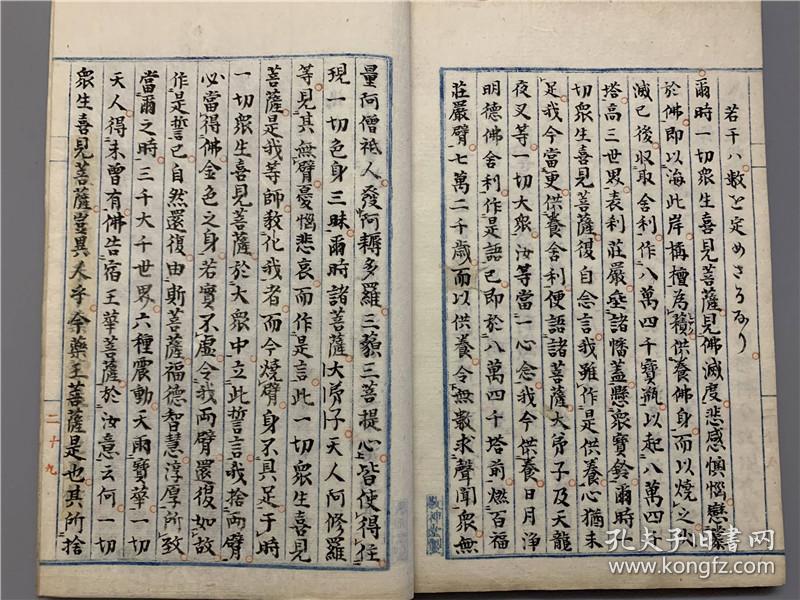 若干ハ数を定めさるなり
爾時一切眾生喜見菩薩見佛滅度悲感懊惱戀慕
於佛即以海此岸栴檀為𧂐供養佛身而以燒之火
滅已後収取舍利作八萬四千寶瓶以起八萬四千
塔高三世界表刹莊嚴垂諸幡蓋懸眾寶鈴爾時一
切眾生喜見菩薩復自念言我雖作是供養心猶未
足我今當更供養舍利便語諸菩薩大弟子及天龍
夜叉等一切大眾汝等當一心念我今供養日月淨
明德佛舍利作是語已即於八萬四千塔前燃百福
莊嚴臂七萬二千歲而以供養令無數求聲聞眾無
量阿僧祗人發阿耨多羅三藐三菩提心皆使得住
現一切色身三昧爾時諸菩薩大弟子天人阿修羅
等見其無臂憂惱悲哀而作是言此一切眾生喜見
菩薩是我等師教化我者而今燒臂身不具足于時
一切眾生喜見菩薩於大眾中立此誓言我捨兩臂
必當得佛金色之身若實不虛令我兩臂還復如故
作是誓已自然還復由斯菩薩福德智慧淳厚所致
當爾之時三千大千世界六種震動天雨寶華一切
天人得未曾有佛告宿王華菩薩於汝意云何一切
眾生喜見菩薩豈異人乎今藥王菩薩是也其所捨
二十九
孔夫子旧书网
kongfz.com